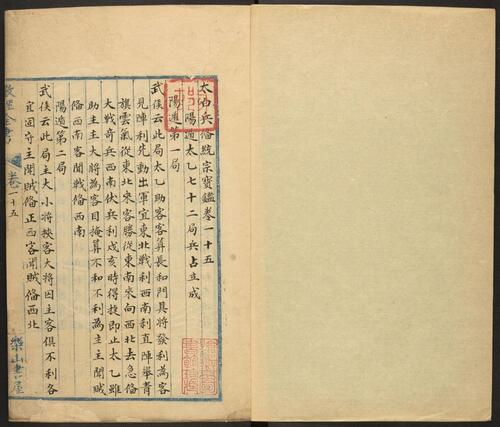 太白兵備統宗寶鑑卷一十五
陽遁太乙七十二局兵占立成
陽遁第一局
武侯云此局太乙助客客算長和門具將發利為客
見陣利先動出軍宜東北戰利西南利直陣舉青
旗雲氣從東北來客勝從東南來向西北去急備
大戰奇兵西南伏兵利戌亥時得捉即止太乙雖
助主主大將為客目掩算不和不利為主主聞賊
備西南客聞戰備西南
陽遁第二局
武侯云此局主大小將挾客大將因主客俱不利各
宜固守主聞賊備正西客聞賊備西北
卷一十五
樂山書屋